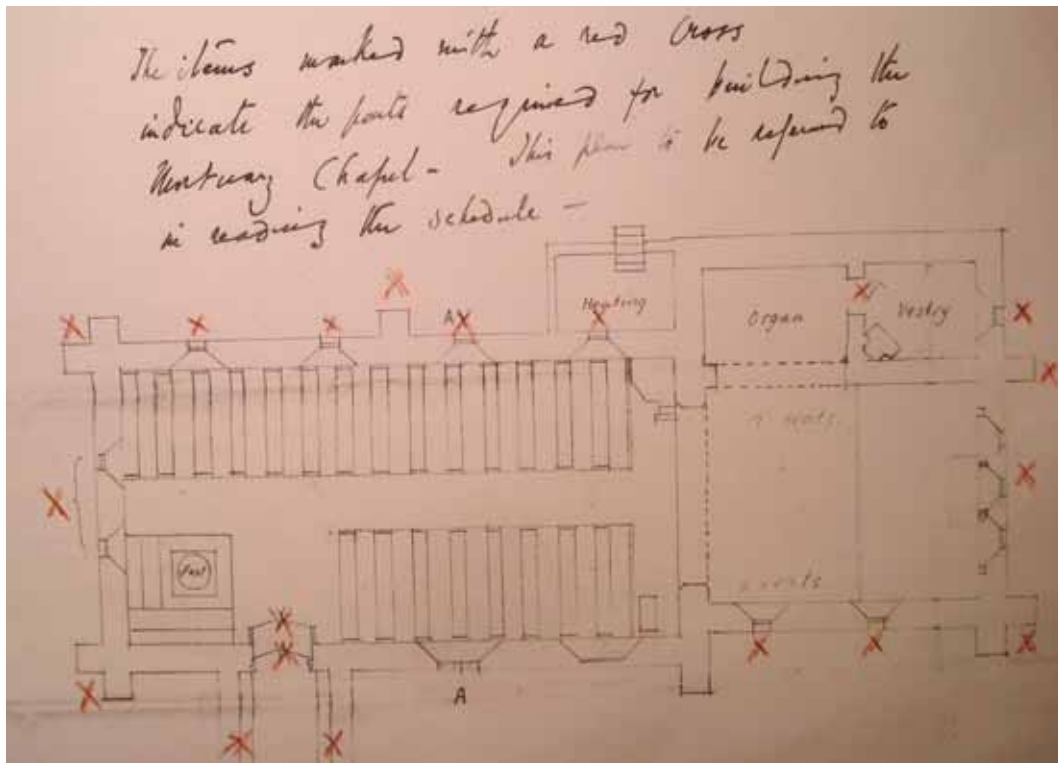 The items marked with a red cross
indicate the parts required for building the
Mortuary Chapel - This plan to be referred to
in reading the schedule -
Heating
Organ
Vestry
A
seats
Font
seats
A